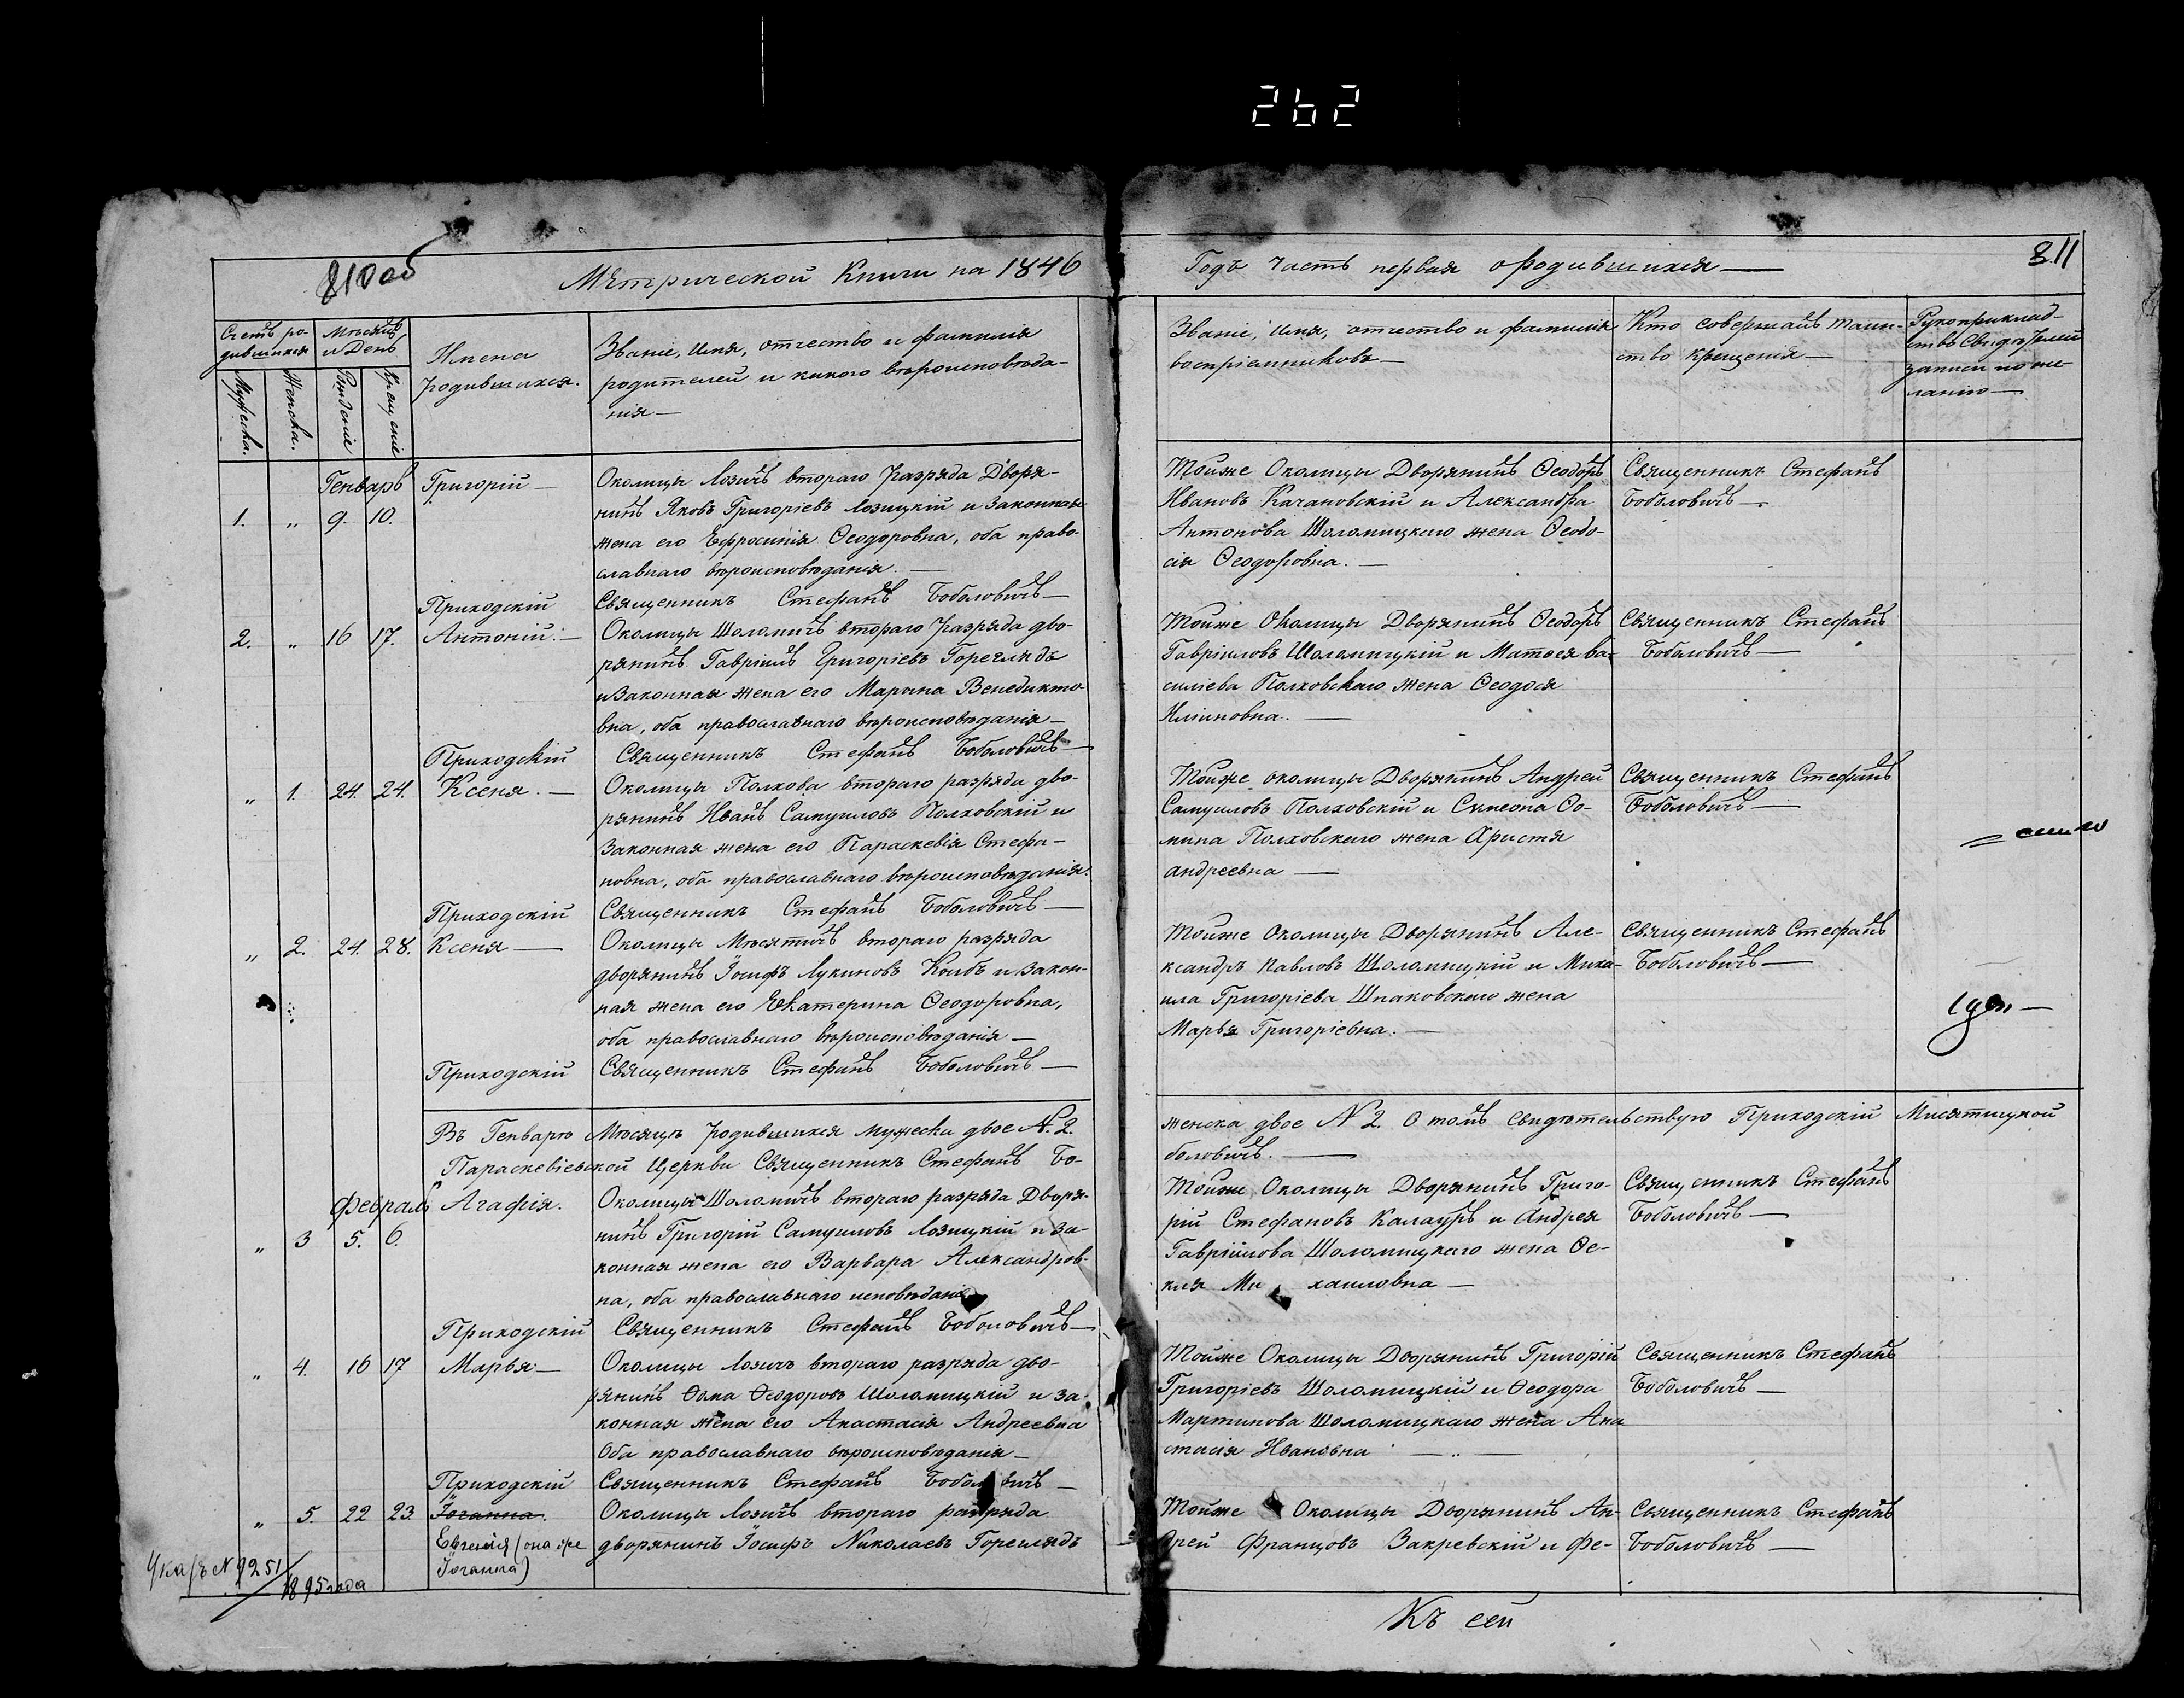 262
810 об
Метрической Книги на 1846
Годъ Часть первая о родившихся —
811
Счетъ ро-
дившихся
Мѣсяцъ
и День
Мужеска.
Женска.
Рожденіе
Крещеніе
Имена
родившихся.
Званіе, имя, отчество и фамилія
родителей и какого вѣроисповѣда-
нія —
Званіе, имя, отчество и фамилія
воспріемниковъ —
Кто совершалъ таин-
ство крещенія —
Рукоприклад-
ство свидѣтелей
записи по же-
ланію —
Генварь Григорій —
1. „ 9. 10.
Околицы Лозичъ втораго разряда Дворя-
нинъ Яковъ Григоріевъ Лозицкій и Законная
жена его Ефросинія Ѳеодоровна, оба право-
славнаго вѣроисповѣданія. —
Тойже Околицы Дворянинъ Ѳеодоръ
Ивановъ Качановскій и Александра
Антонова Шоломицкаго жена Ѳеодо-
сія Ѳеодоровна. —
Священникъ Стефанъ
Боболовичъ —
Приходскій Священникъ Стефанъ Боболовичъ —
2. „ 16 17. Антоній. —
Околицы Шоломичъ втораго разряда дво-
рянинъ Гавріилъ Григоріевъ Горегляд ъ
и Законная жена его Марына Венедикто-
вна, оба православнаго вѣроисповѣданія —
Тойже Околицы Дворянинъ Ѳеодоръ
Гавріиловъ Шоломицкій и Матѳея Ва-
силіева Полховскаго жена Ѳеодося
Иліиновна. —
Священникъ Стефанъ
Боболовичъ —
Приходскій Священникъ Стефанъ Боболовичъ —
„ 1. 24. 24. Ксеня. —
Околицы Полхова втораго разряда дво-
рянинъ Иванъ Самуиловъ Полховскій и
Законная жена его Параскевія Стефа-
новна, оба православнаго вѣроисповѣданія.
Тойже околицы Дворянинъ Андрей
Самуиловъ Полховскій и Симеона Ѳо-
мина Полховскаго жена Христя
Андреевна —
Священникъ Стефанъ
Боболовичъ —
Приходскій Священникъ Стефанъ Боболовичъ —
„ 2. 24. 28. Ксеня —
Околицы Мѣсятичъ втораго разряда
дворянинъ Іосифъ Лукиновъ Колбъ и закон-
ная жена его Екатерина Ѳеодоровна,
оба православнаго вѣроисповѣданія —
Тойже Околицы Дворянинъ Але-
ксандръ Павловъ Шоломицкій и Миха-
ила Григоріева Шпаковскаго жена
Марья Григоріевна. —
Священникъ Стефанъ
Боболовичъ —
Приходскій Священникъ Стефанъ Боболовичъ —
Въ Генварѣ Мѣсяцѣ родившихся мужеска двое №. 2.
женска двое № 2. О томъ свидѣтельствую Приходскій Мисятицкой
Параскевіевской Церкви Священникъ Стефанъ Бо-
боловичъ. —
Февраль Агафія.
„ 3 5. 6.
Околицы Шоломичъ втораго разряда Дворя-
нинъ Григорій Самуиловъ Лозицкій и за-
конная жена его Варвара Александров-
на, оба православнаго исповѣданія
Тойже Околицы Дворянинъ Григо-
рій Стефановъ Калауръ и Андрея
Гавріилова Шоломицкаго жена Ѳе-
кля Ми хаиловна —
Священникъ Стефанъ
Боболовичъ —
Приходскій Священникъ Стефанъ Боболовичъ —
„ 4. 16 17 Марья —
Околицы Лозичъ втораго разряда дво-
рянинъ Ѳома Ѳеодоровъ Шоломицкій и за-
конная жена его Анастасія Андреевна
Оба православнаго вѣроисповѣданія —
Тойже Околицы Дворянинъ Григорій
Григоріевъ Шоломицкій и Ѳеодора
Мартинова Шоломицкаго жена Ана
стасія Ивановна —
Священникъ Стефанъ
Боболовичъ —
Приходскій Священникъ Стефанъ Боболовичъ —
„ 5. 22 23. Іоганна.
Евгенія (она же
Іоганна)
Околицы Лозичъ втораго разряда
дворянинъ Іосифъ Николаевъ Гореглядъ
Тойже Околицы Дворянинъ Ан-
дрей Францовъ Закревскій и Фе-
Священникъ Стефанъ
Боболовичъ —
Указъ N 9251/1895 года
Къ сей